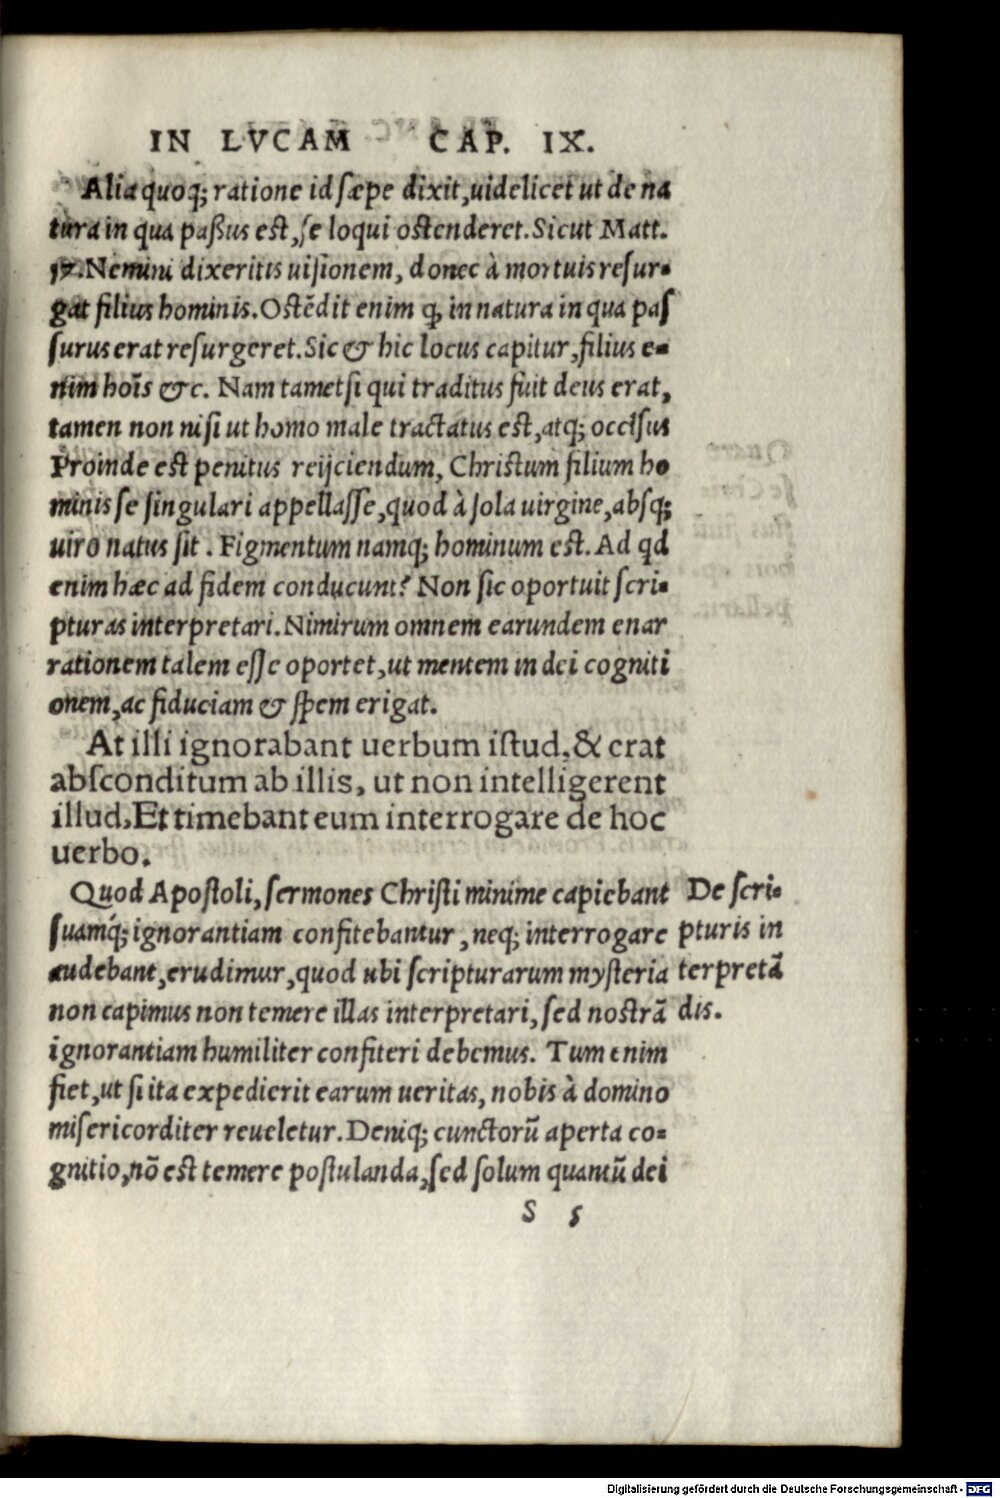 IN LVCAM CAP. IX.
Alia quoq; ratione id sæpe dixit, uidelicet ut de na
tura in qua paßus est, se loqui ostenderet. Sicut Matt.
17. Nemini dixeritis uisionem, donec à mortuis resur-
gat filius hominis. Ostẽdit enim ꝙ in natura in qua pas
surus erat resurgeret. Sic & hic locus capitur, filius e-
nim hoĩs &c. Nam tametsi qui traditus fuit deus erat,
tamen non nisi ut homo male tractatus est, atq; occisus
Proinde est penitus reijciendum, Christum filium ho
minis se singulari appellasse, quod à sola uirgine, absq;
uiro natus sit. Figmentum namq; hominum est. Ad qd
enim hæc ad fidem conducunt? Non sic oportuit scri-
pturas interpretari. Nimirum omnem earundem enar
rationem talem esse oportet, ut mentem in dei cogniti
onem, ac fiduciam & spem erigat.
At illi ignorabant uerbum istud, & erat
absconditum ab illis, ut non intelligerent
illud. Et timebant eum interrogare de hoc
uerbo.
Quod Apostoli, sermones Christi minime capiebant
suamq́; ignorantiam confitebantur, neq; interrogare
audebant, erudimur, quod ubi scripturarum mysteria
non capimus non temere illas interpretari, sed nostrã
ignorantiam humiliter confiteri debemus. Tum enim
fiet, ut si ita expedierit earum ueritas, nobis à domino
misericorditer reueletur. Deniq; cunctorũ aperta co-
gnitio, nõ est temere postulanda, sed solum quantũ dei
De scri-
pturis in
terpretã
dis.
S 5
Digitalisierung gefördert durch die Deutsche Forschungsgemeinschaft - DFG